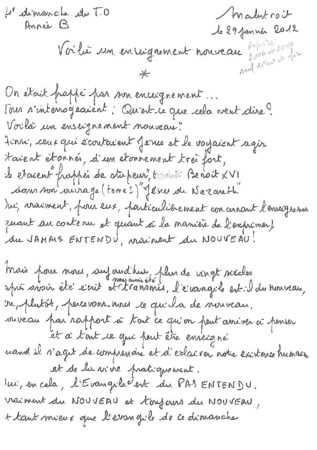 4e dimanche du T.O
Année B
Malestroit
le 29 janvier 2012
Voilà un enseignement nouveau
*
On était frappé par son enseignement...
Tous s'interrogeaient : Qu'est-ce que cela veut dire ?
Voilà un enseignement nouveau"
Ainsi, ceux qui écoutaient Jésus et le voyaient agir
taient étonnés, d'un étonnement très fort,
ls étaient "frappés de stupeur", Benoît XVI
dans son ouvrage (tome I) "Jésus de Nazareth"
ui, vraiment, pour eux, particulièrement concernant l'enseignement
quant au contenu et quant à la manière de l'exprimer,
du JAMAIS ENTENDU, vraiment du NOUVEAU !
Mais pour nous, aujourd'hui, plus de vingt siècles
près avoir été écrit et nous avoir été transmis, l'évangile est-il du nouveau,
ou, plutôt, percevons-nous ce qu'il a de nouveau,
ouveau par rapport à tout ce qu'on peut arriver à penser
et à tout ce qui peut être enseigné
uand il s'agit de comprendre et d'éclairer notre existence humaine
et de la vivre pratiquement.
ui, en cela, l'Evangile c'est du PAS ENTENDU.
vraiment du NOUVEAU et toujours du NOUVEAU,
t tant mieux que l'évangile de ce dimanche